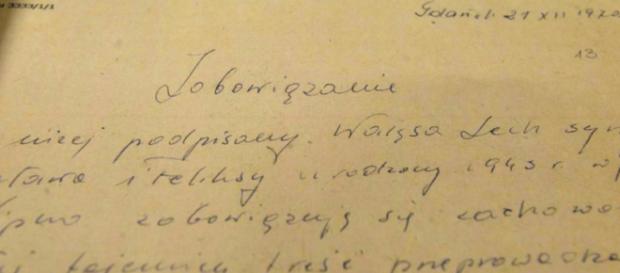 3333/1/1
Gdańsk 21 XII 1970
13
Zobowiązanie
niżej podpisany. Wałęsa Lech syn
sława i Feliksy urodzony 1943 r w
zobowiązuję się zachowa
tajemnicy treść przeprowadza